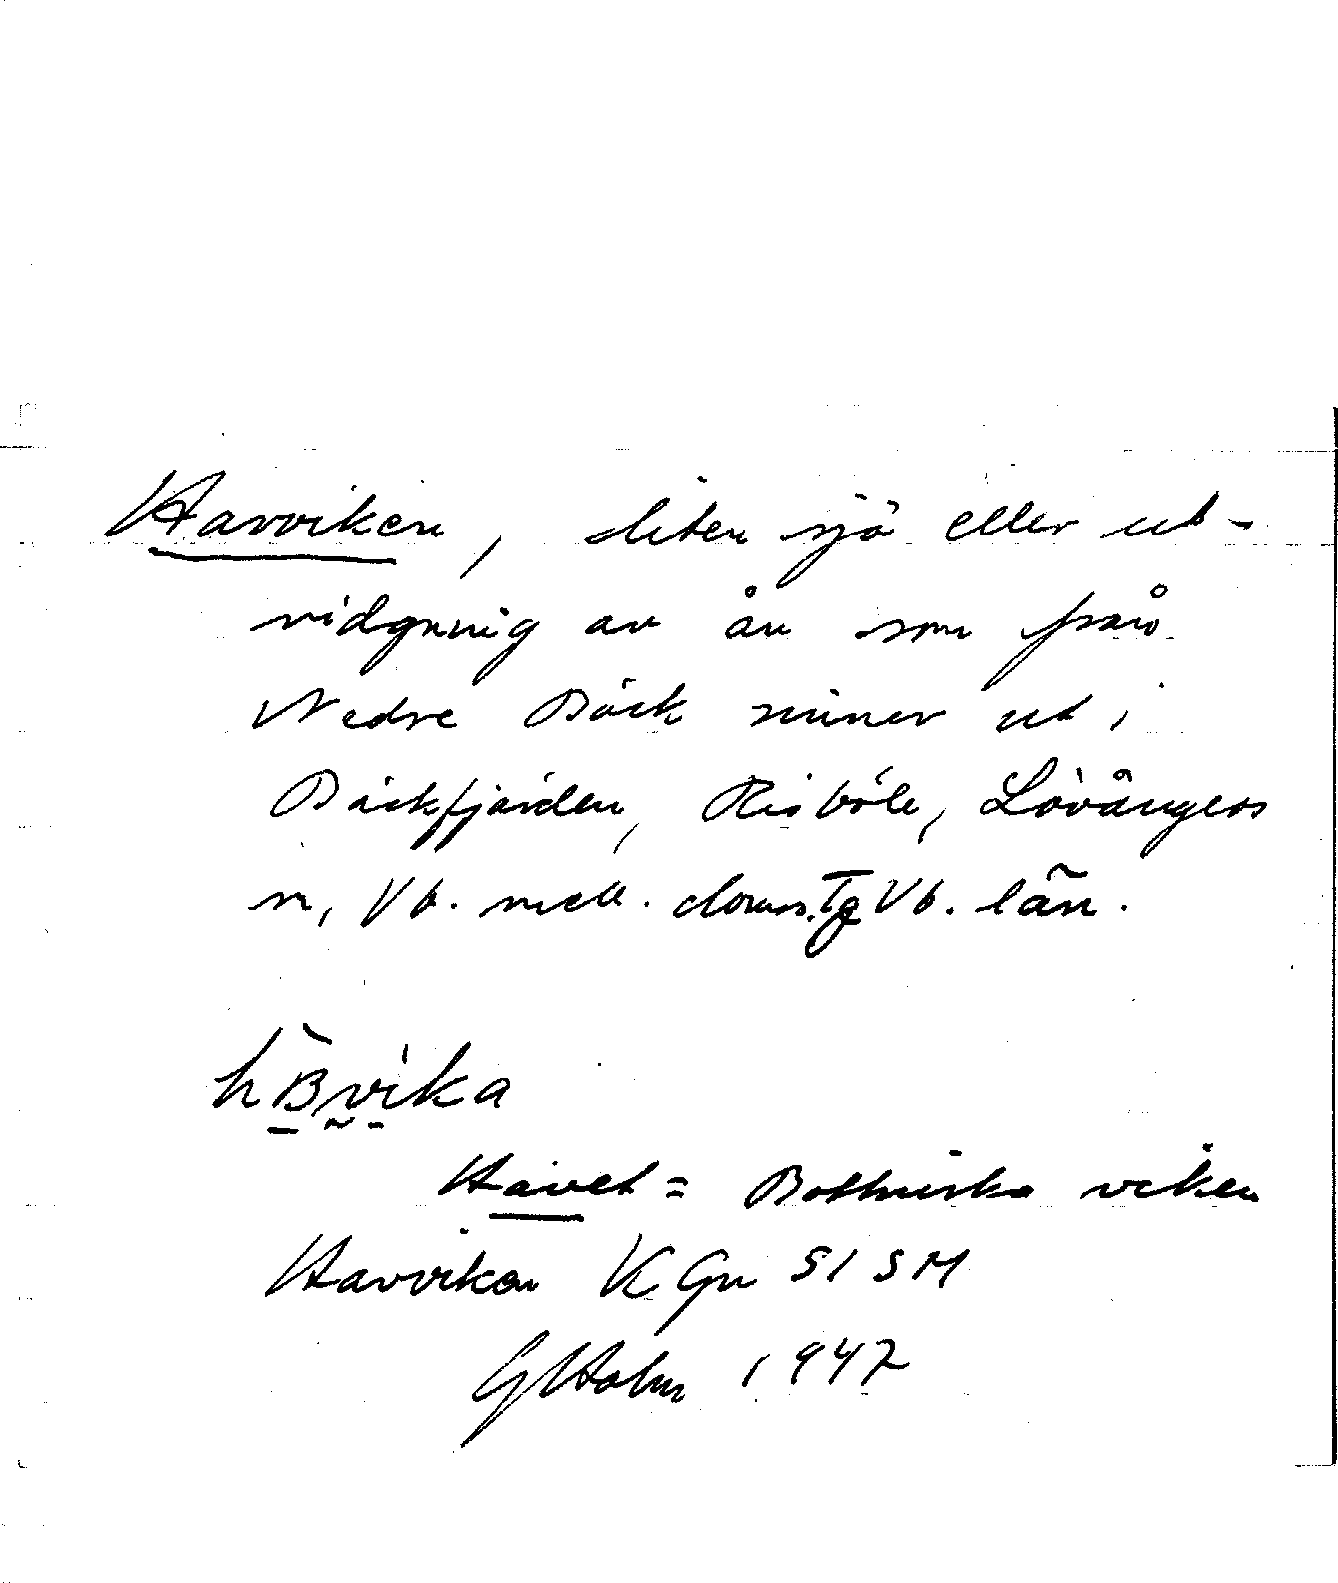 Havviken, liten sjö eller ut-
vidgning av ån som från
Nedre Bäck rinner ut i
Bäckfjärden, Risböle, Lövångers
sn, Vb. mell. doms. Tg Vb. län.
Havet = Bottniska viken
Havviken K Gn 51 SM
G Holm 1947